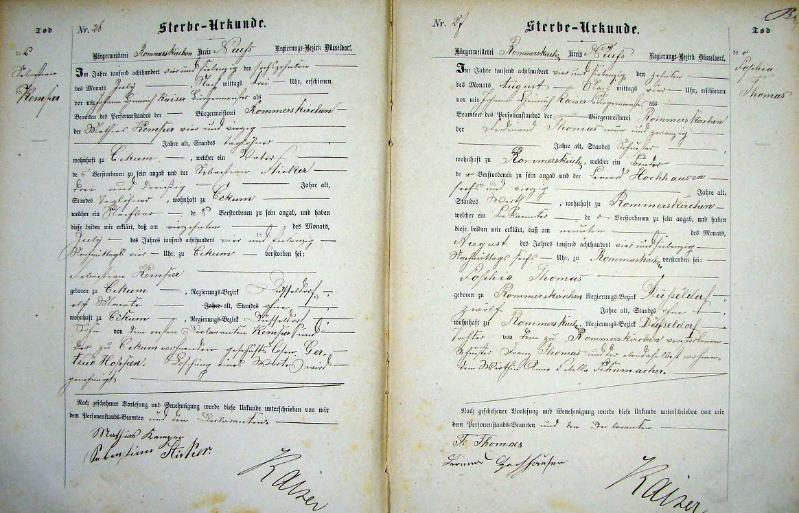 Tod
Nr. 26
Sterbe-Urkunde.
Sebastian
Kemper
Bürgermeisterei Rommerskirchen Kreis Neuß Regierungs-Bezirk Düsseldorf.
Im Jahre tausend achthundert vier und siebenzig den
des Monats July Nachmittags Uhr, erschienen
vor mir Johann Heinrich Kaiser Bürgermeister als
Beamten des Personenstandes der Bürgermeisterei Rommerskirchen
der Mathias Kemper vier und vierzig
Jahre alt, Standes Taglöhner
wohnhaft zu Eckum, welcher ein Vater
de s Verstorbenen zu sein angab und der Sebastian
drei und dreißig Jahre alt,
Standes Taglöhner, wohnhaft zu Eckum
welcher ein Nachbar de s Verstorbenen zu sein angab, und haben
diese beiden mir erklärt, daß am des Monats,
July des Jahres tausend achthundert vier und siebenzig
Nachmittags vier Uhr, zu Eckum verstorben sei:
Sebastian Kemper
geboren zu Eckum, Regierungs-Bezirk Düsseldorf,
elf Monate Jahre alt, Standes ohne
wohnhaft zu Eckum, Regierungs-Bezirk Düsseldorf
Sohn von dem ersten Declaranten Kemper und
der zu Eckum wohnenden geschäftslosen Ger-
trud
genehmigt
Nach geschehener Vorlesung und Genehmigung wurde diese Urkunde unterschrieben von mir
dem Personenstands-Beamten und den Declaranten.
Mathias Kemper
Sebastian
Kaiser
Nr. 27
Sterbe-Urkunde.
Tod
Sophia
Thomas
Bürgermeisterei Rommerskirchen Kreis Neuß Regierungs-Bezirk Düsseldorf.
Im Jahre tausend achthundert vier und siebenzig den zehnten
des Monats August Nachmittags vier Uhr, erschienen
vor mir Johann Heinrich Kaiser Bürgermeister als
Beamten des Personenstandes der Bürgermeisterei Rommerskirchen
der Ferdinand Thomas neun und zwanzig
Jahre alt, Standes Schuster
wohnhaft zu Rommerskirchen, welcher ein Bruder
de r Verstorbenen zu sein angab und der Hochhausen
sechs und vierzig Jahre alt,
Standes Wirth, wohnhaft zu Rommerskirchen
welcher ein Bekannter de r Verstorbenen zu sein angab, und haben
diese beiden mir erklärt, daß am neunten des Monats,
August des Jahres tausend achthundert vier und siebenzig
Nachmittags sechs Uhr, zu Rommerskirchen verstorben sei:
Sophia Thomas
geboren zu Rommerskirchen Regierungs-Bezirk Düsseldorf
zwölf Jahre alt, Standes ohne
wohnhaft zu Rommerskirchen, Regierungs-Bezirk Düsseldorf
Tochter von dem zu Rommerskirchen verstorbenen
Schuster Franz Thomas und der daselbst wohnen-
den Wirthin Schumacher.
Nach geschehener Vorlesung und Genehmigung wurde diese Urkunde unterschrieben von mir
dem Personenstands-Beamten und den Declaranten
F. Thomas
Hochhausen
Kaiser